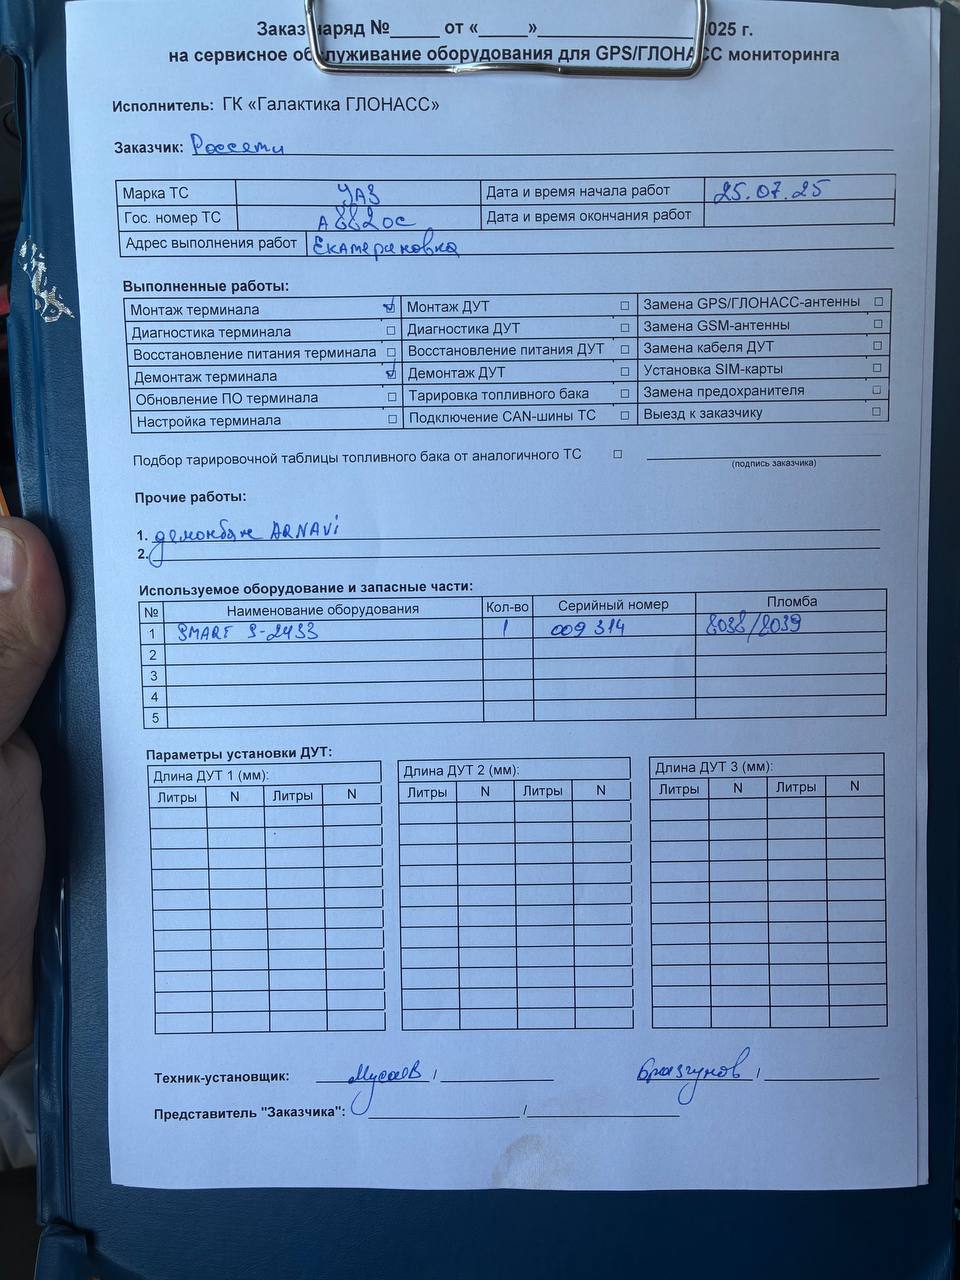 Заказ-наряд №_____ от «____»__________________2025 г.
на сервисное обслуживание оборудования для GPS/ГЛОНАСС мониторинга
Исполнитель: ГК «Галактика ГЛОНАСС»
Заказчик: Россети
Марка ТС УАЗ Дата и время начала работ 25.07.25
Гос. номер ТС А882ос Дата и время окончания работ
Адрес выполнения работ Екатериновка
Выполненные работы:
Монтаж терминала ☑ Монтаж ДУТ □ Замена GPS/ГЛОНАСС-антенны □
Диагностика терминала □ Диагностика ДУТ □ Замена GSM-антенны □
Восстановление питания терминала □ Восстановление питания ДУТ □ Замена кабеля ДУТ □
Демонтаж терминала ☑ Демонтаж ДУТ □ Установка SIM-карты □
Обновление ПО терминала □ Тарировка топливного бака □ Замена предохранителя □
Настройка терминала □ Подключение CAN-шины ТС □ Выезд к заказчику □
Подбор тарировочной таблицы топливного бака от аналогичного ТС □
(подпись заказчика)
Прочие работы:
1. ARNAVi
2.
Используемое оборудование и запасные части:
№ Наименование оборудования Кол-во Серийный номер Пломба
1 SMART S-2433 1 009314 8038/8039
2
3
4
5
Параметры установки ДУТ:
Длина ДУТ 1 (мм): Длина ДУТ 2 (мм): Длина ДУТ 3 (мм):
Литры N Литры N Литры N Литры N Литры N Литры N
Техник-установщик: Мусаев / Бразгунов /
Представитель "Заказчика": /